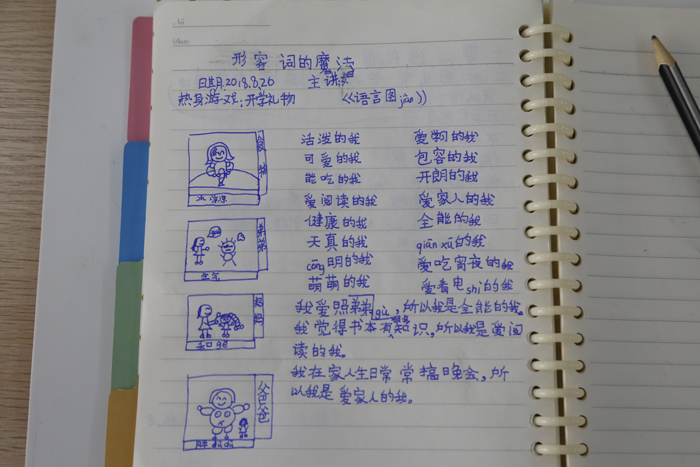 No
Date
形容词的魔法
日期2018.8.26 主讲
热身游戏:开学礼物 《语言图jiàn》
活泼的我 爱狗的我
可爱的我 包容的我
能吃的我 开朗的我
爱阅读的我 爱家人的我
冰凉凉
健康的我 全能的我
弟弟
天真的我 qiān xū的我
cōng明的我 爱吃宵夜的我
生气
萌萌的我 爱看电shì的我
妈妈
我爱照弟弟gù,所以我是全能的我。
我觉得书本有很多知识,所以我是爱阅
读的我。
我在家人生日常常搞晚会,所
以我是爱家人的我。
爸爸
胖dūdū